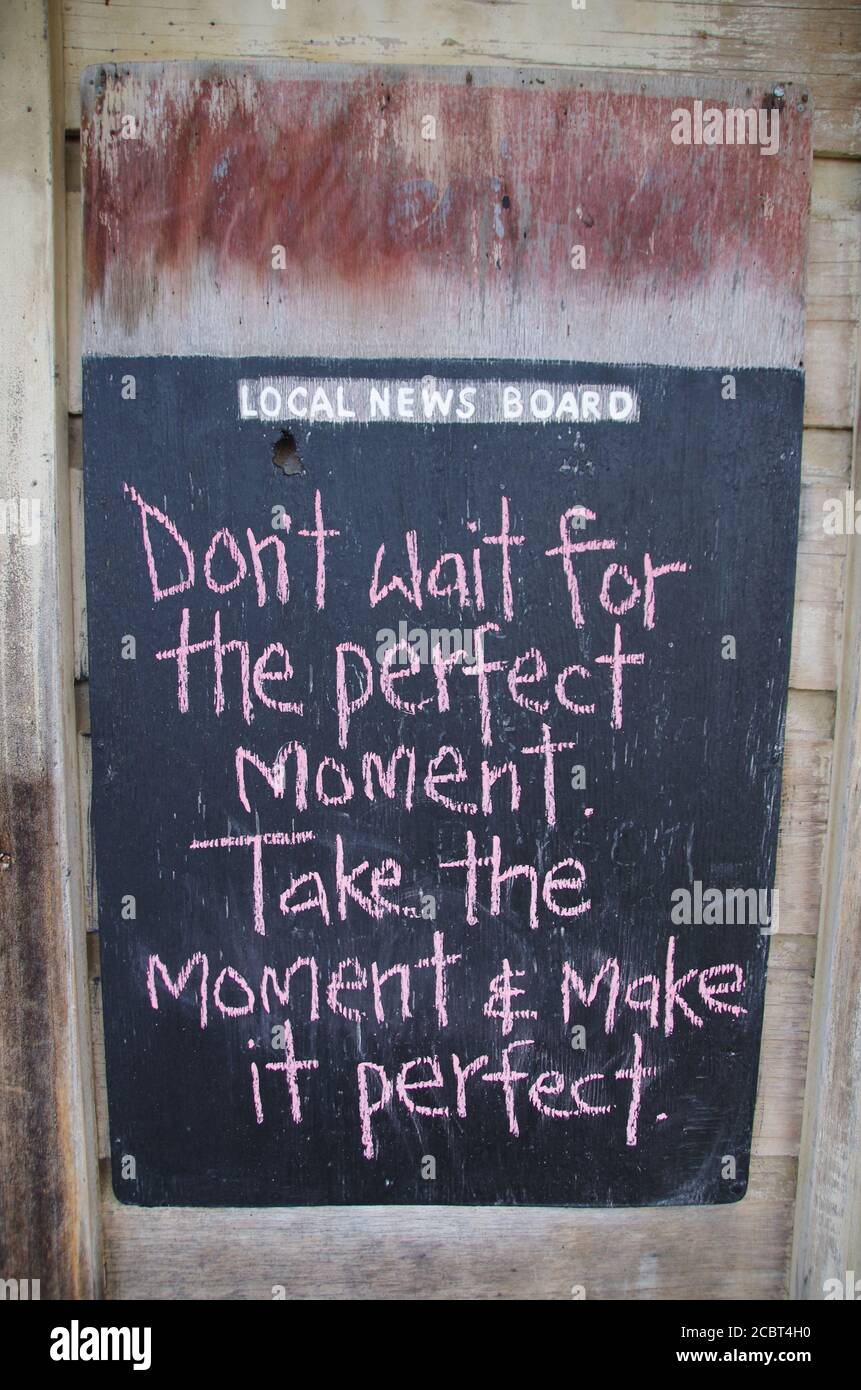 LOCAL NEWS BOARD
Don't wait for
the perfect
moment.
Take the
moment & make
it perfect.
alamy
Image ID: 2CBT4H0
www.alamy.com